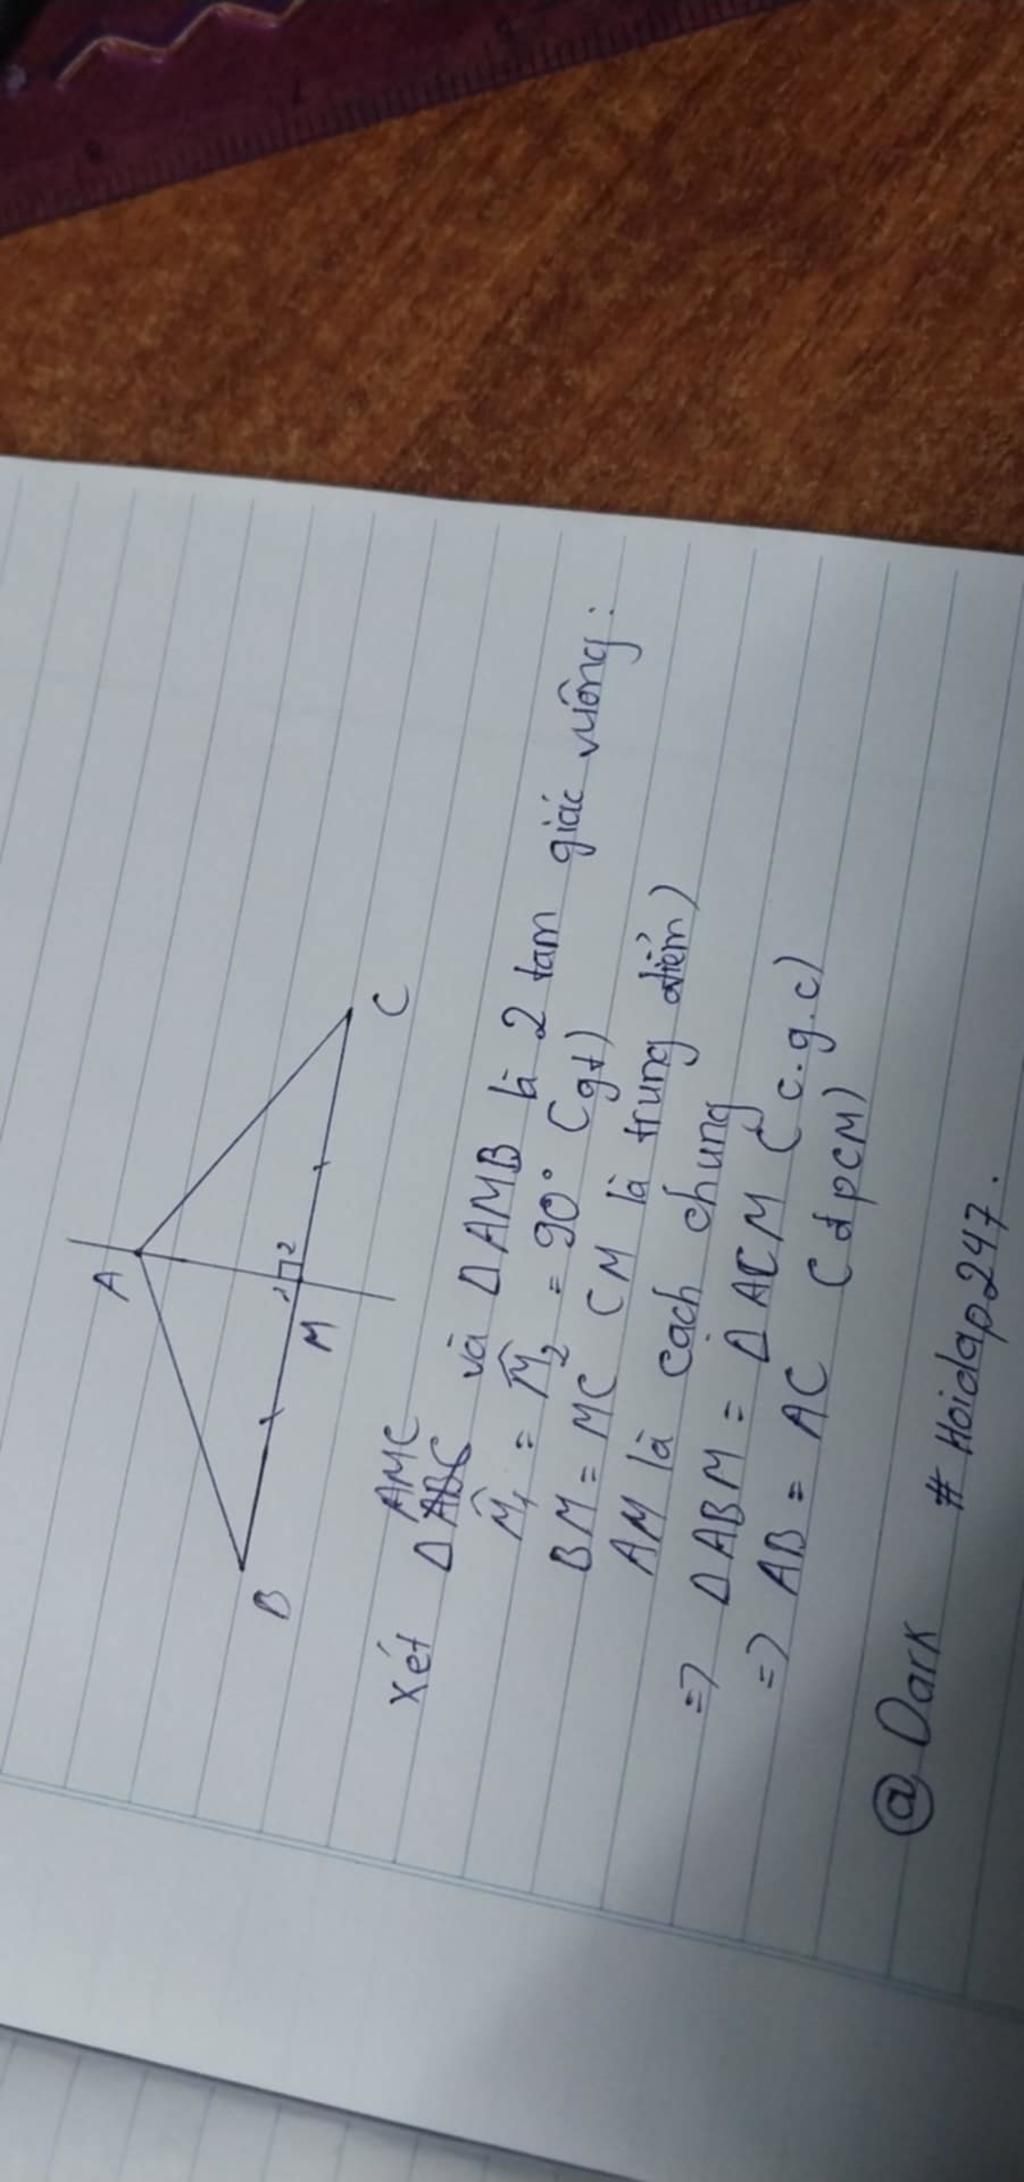 A
1 2
B M C
AMC
Xét Δ ABC và Δ AMB là 2 tam giác vuông :
M̂₁ = M̂₂ = 90° (gt)
BM = MC (M là trung điểm)
AM là cạch chung
=> Δ ABM = Δ ACM (c.g.c)
=> AB = AC (đpCM)
@ Dark # Hoidap247.